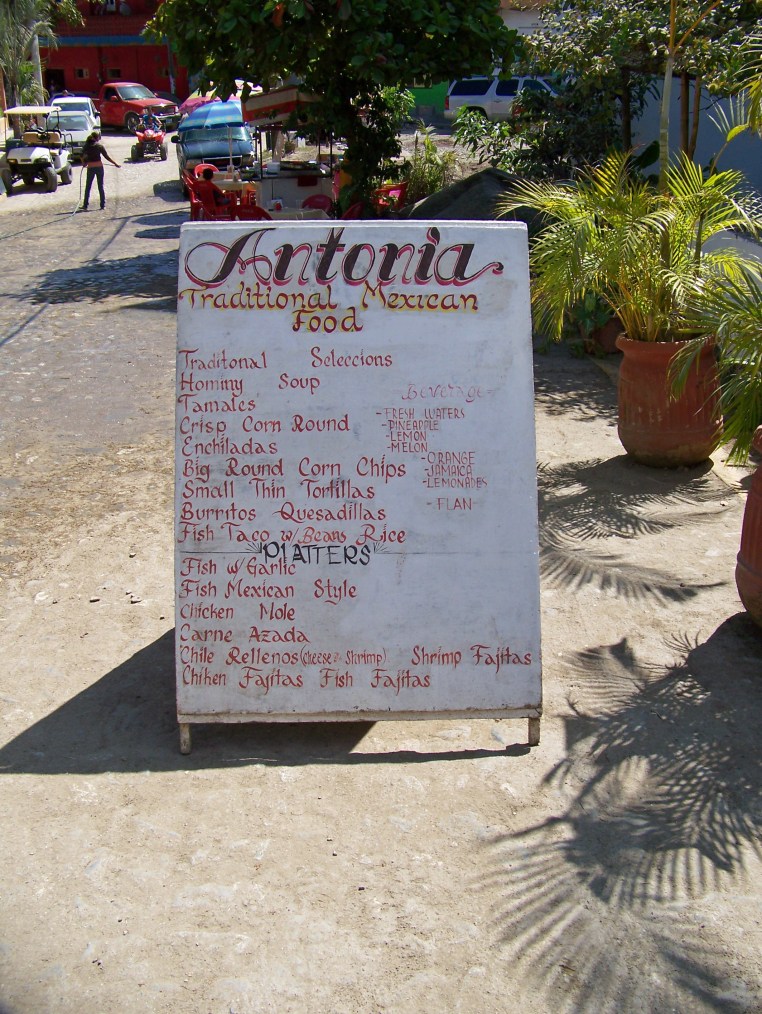 Antonia
Traditional Mexican
Food
Traditonal Seleccions
Hominy Soup
Tamales
Crisp Corn Round
Enchiladas
Big Round Corn Chips
Small Thin Tortillas
Burritos Quesadillas
Fish Taco w/ Beans Rice
Beverage
-FRESH WATERS
-PINEAPPLE
-LEMON
-MELON
-ORANGE
-JAMAICA
-LEMONADES
-FLAN-
"PLATTERS"
Fish w/ Garlic
Fish Mexican Style
Chicken Mole
Carne Azada
Chile Rellenos (Cheese & Shrimp) Shrimp Fajitas
Chiken Fajitas Fish Fajitas